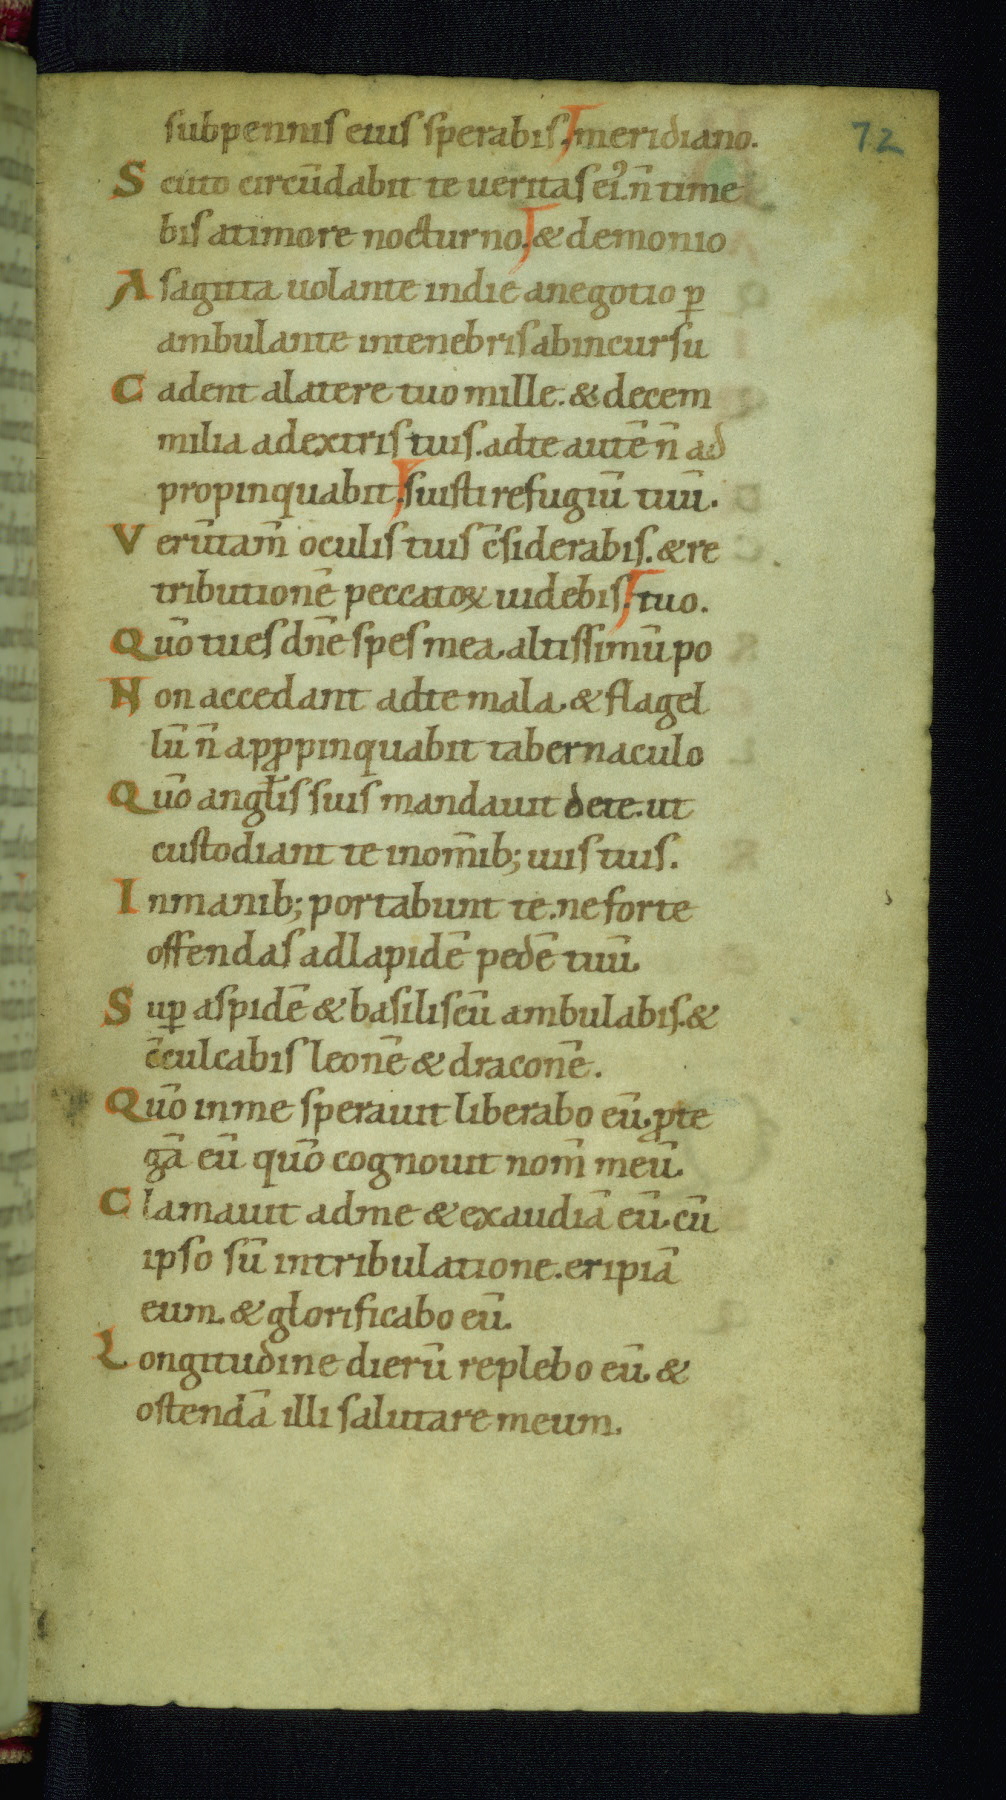 72
subpennis eius sperabis. meridiano.
Scuto circūdabit te ueritas eiꝰ. n̄ time
bis atimore nocturno. & demonio
A sagitta uolante indie anegotio ꝑ
ambulante intenebris abincursu
Cadent alatere tuo mille. & decem
milia adextris tuis. adte autē n̄ ad
propinquabit. suisti refugiū tuū.
Verūtam̄ oculis tuis c̄siderabis. & re
tributionē peccatoꝝ uidebis. tuo.
Quō tu es dn̄e spes mea. altissimū po
Non accedant adte mala. & flagel
lū n̄ apꝓpinquabit tabernaculo
Quō angl̄is suis mandauit dete. ut
custodiant te inom̄ib; uiis tuis.
Inmanib; portabunt te. ne forte
offendas adlapidē pedē tuū.
Suꝑ aspidē & basiliscū ambulabis. &
c̄culcabis leonē & draconē.
Quō inme sperauit liberabo eū. ꝓte
gā eū quō cognouit nom̄ meū.
Clamauit adme & exaudiā eū. cū
ipso sū intribulatione. eripiā
eum. & glorificabo eū.
Longitudine dierū replebo eū. &
ostendā illi salutare meum.